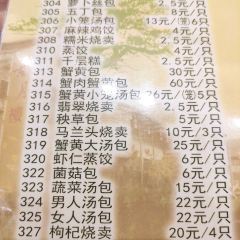 304 萝卜丝包 2.5元/只
305 五丁包 3元/只
306 小笼汤包 13元/6只
307 麻辣鸡饺 4元/只
308 糯米烧卖 2.5元/只
310 蒸饺 4元/只
311 千层糕 2.5元/只
313 蟹黄包 30元/只
314 蟹肉蟹黄包 60元/只
315 蟹黄小笼汤包 26元/5只
316 翡翠烧卖 5元/只
317 秧草包 5元/只
318 马兰头烧卖 10元/3只
319 蟹黄大汤包 25元/只
320 虾仁蒸饺 6元/只
322 菌菇包 6元/只
323 蔬菜汤包 15元/只
324 男人汤包 22元/只
325 女人汤包 22元/只
327 枸杞烧卖 20元/4只